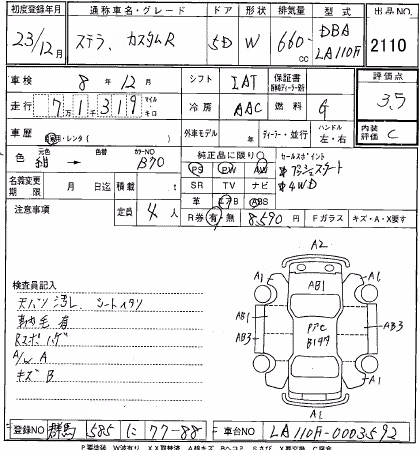 初度登録年月 通称車名・グレード ドア 形状 排気量 型式 出品NO
23/12月 ステラ、カスタムR 5D W 660cc DBA LA110F 2110
車検 8年12月 シフト IAT 保証書 評価点
走行 7万1千319 マイル キロ 冷房 AAC 燃料 G 3.5
車歴 自用・レンタ( ) 外車モデル 年 ディーラー・並行 ハンドル 左・右 内装評価 C
色 元色 紺 → 色替 カラーNO B70 純正品に限り○ セールスポイント
PS PW AW プッシュスタート
名義変更期限 月 日迄 積載 t SR TV ナビ 4WD
革 エアB ABS
注意事項 定員 4人 R券 有・無 8590円 Fガラス キズ・A・X要す
A2
検査員記入 A1 A1
天バリ汚れ、シートイタリ AB1
AB1 AB3
Rスポハゲ AB3
A/W A
キズ B
A1 A1
A1
登録NO 群馬 585 に 77-88 車台NO LA110F-0003592